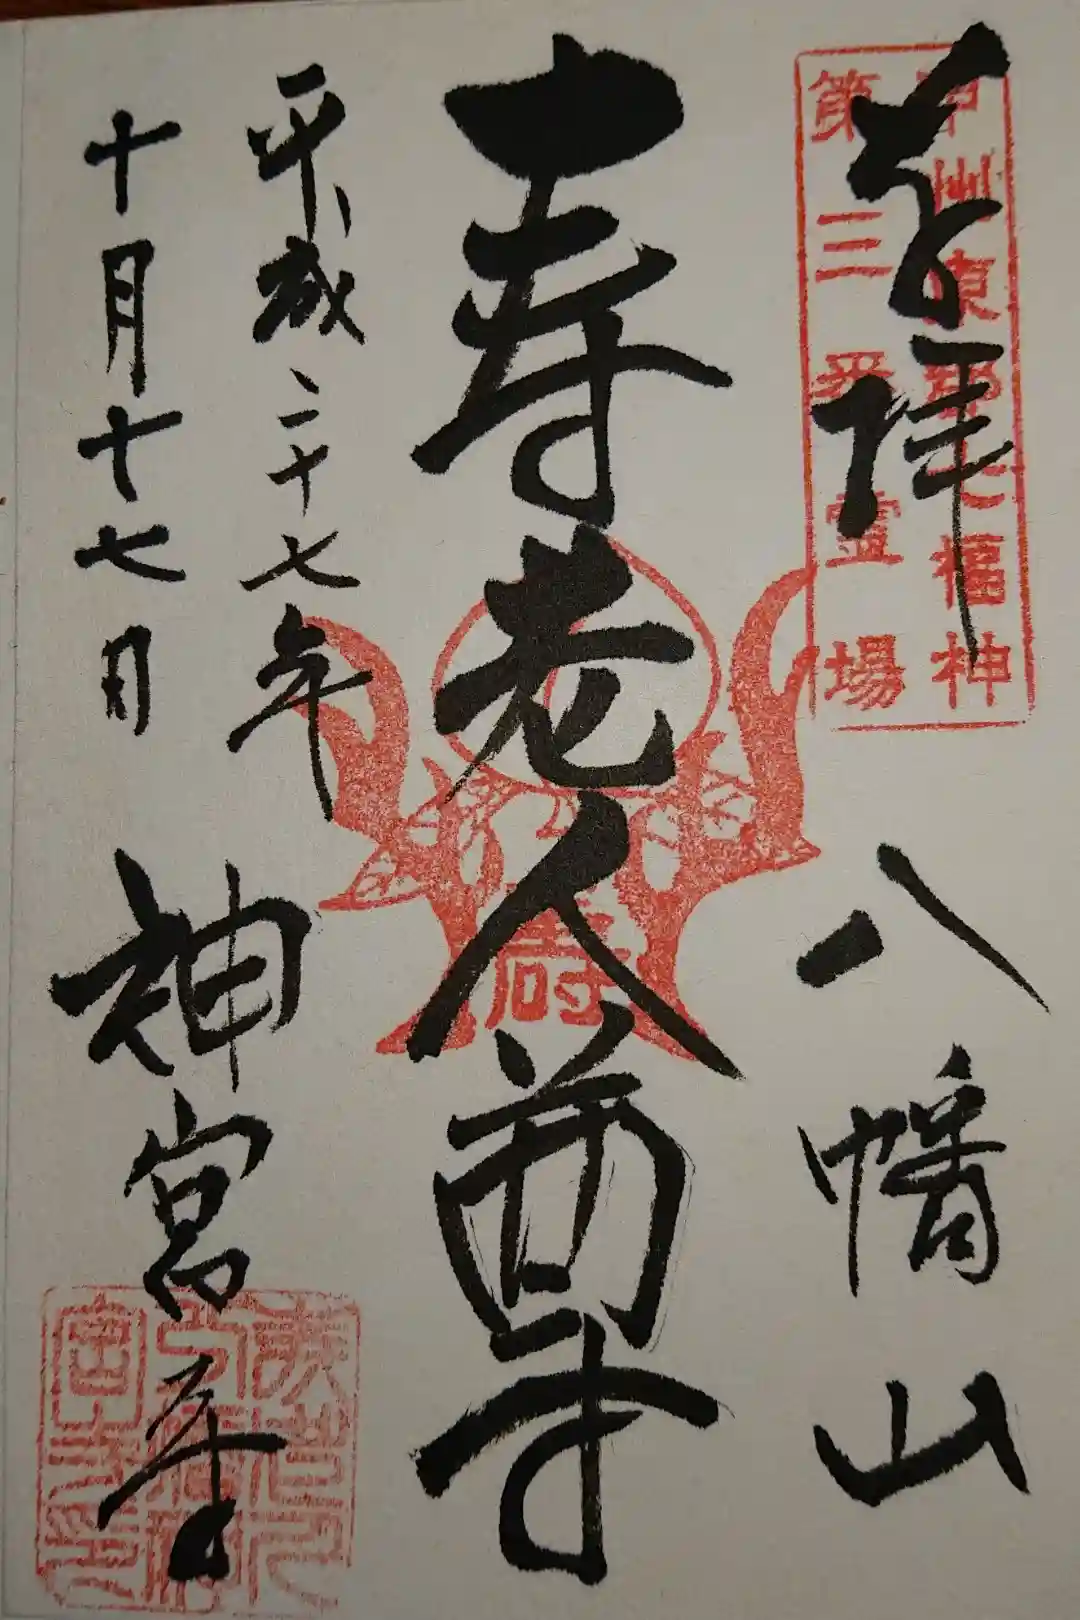 奉拝
甲州東郡七福神
第三番霊場
八幡山
寿老人尊
寿
平成二十七年
十月十七日
神宮寺